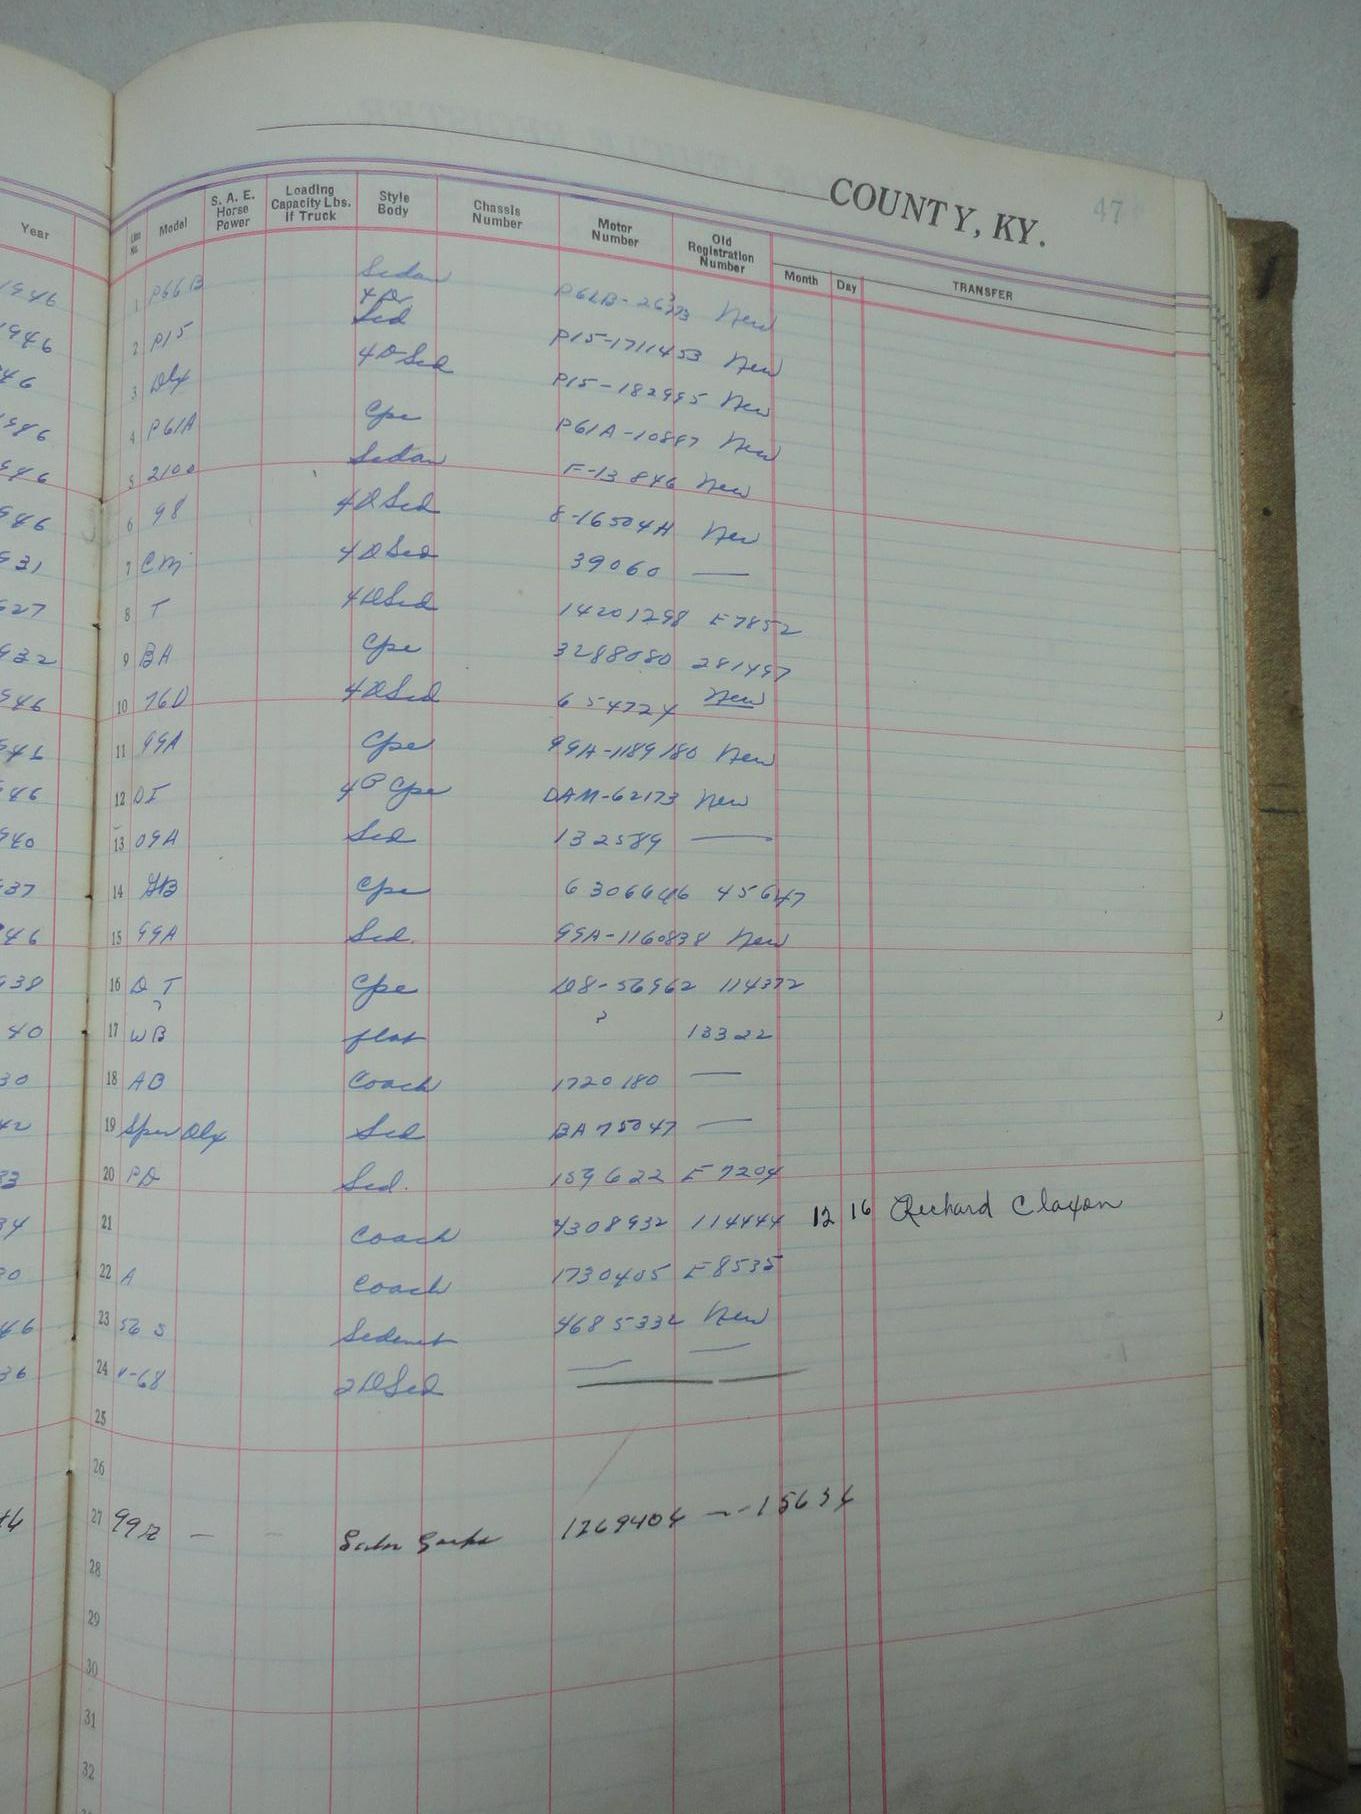 COUNTY, KY.
47
Year
Line No.
Model
S. A. E. Horse Power
Loading Capacity Lbs. if Truck
Style Body
Chassis Number
Motor Number
Old Registration Number
Month
Day
TRANSFER
1946 1 P66B Sedan New
1946 2 P15 4 Dr Sed P15-1711453 New
46 3 Dlx 4 D Sed P15-182995 New
1946 4 P61A Cpe New
946 5 2100 Sedan F-13846 New
946 6 98 4 D Sed 8-16504H New
931 7 CM 4 D Sed 39060 —
927 8 T 4 D Sed 14201298 E7852
932 9 BA Cpe 3288080 281497
946 10 76D 4 D Sed 654724 New
11 99A Cpe 99A-1189180 New
46 12 4 P Cpe DAM-62173 New
940 13 09A Sed 132589 —
937 14 Cpe 45647
46 15 99A Sed. 99A-1160838 New
938 16 D T Cpe D8-56962 114372
?
40 17 WB flat ? 13322
30 18 AB Coach 1720180 —
42 19 Sper Dlx Sed BA75047 —
33 20 PD Sed. 159622 E7204
34 21 Coach 4308932 114444 12 16 Richard Claxon
30 22 A Coach 1730405 E8535
46 23 56 S 4685332 New
36 24 V-68 2 D Sed — —
25
26
46 27 — 1269404 — -15634
28
29
30
31
32